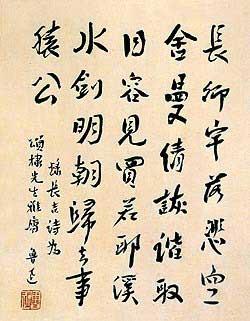 長卿牢落悲空
舍曼倩詼諧取
自容見買若耶溪
水劍明朝歸去事
猿公
錄長吉詩為
頌棣先生雅屬 魯迅